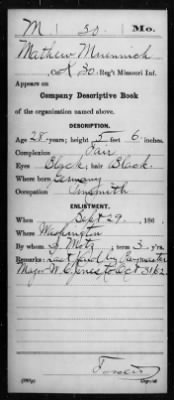 M 30 Mo.
Mathew
Co. K, 30 Reg't Missouri Inf.
Appears on
Company Descriptive Book
of the organization named above.
DESCRIPTION.
Age 28 years; height 5 feet 6 inches.
Complexion Fair
Eyes Black; hair Black
Where born Germany
Occupation
ENLISTMENT.
When Sept 29, 186
Where Washington
By whom J. Motz; term 3 y'rs.
Remarks: Last paid by Paymaster
Major W. C. Jones to Oct 31 62.
Copyist.